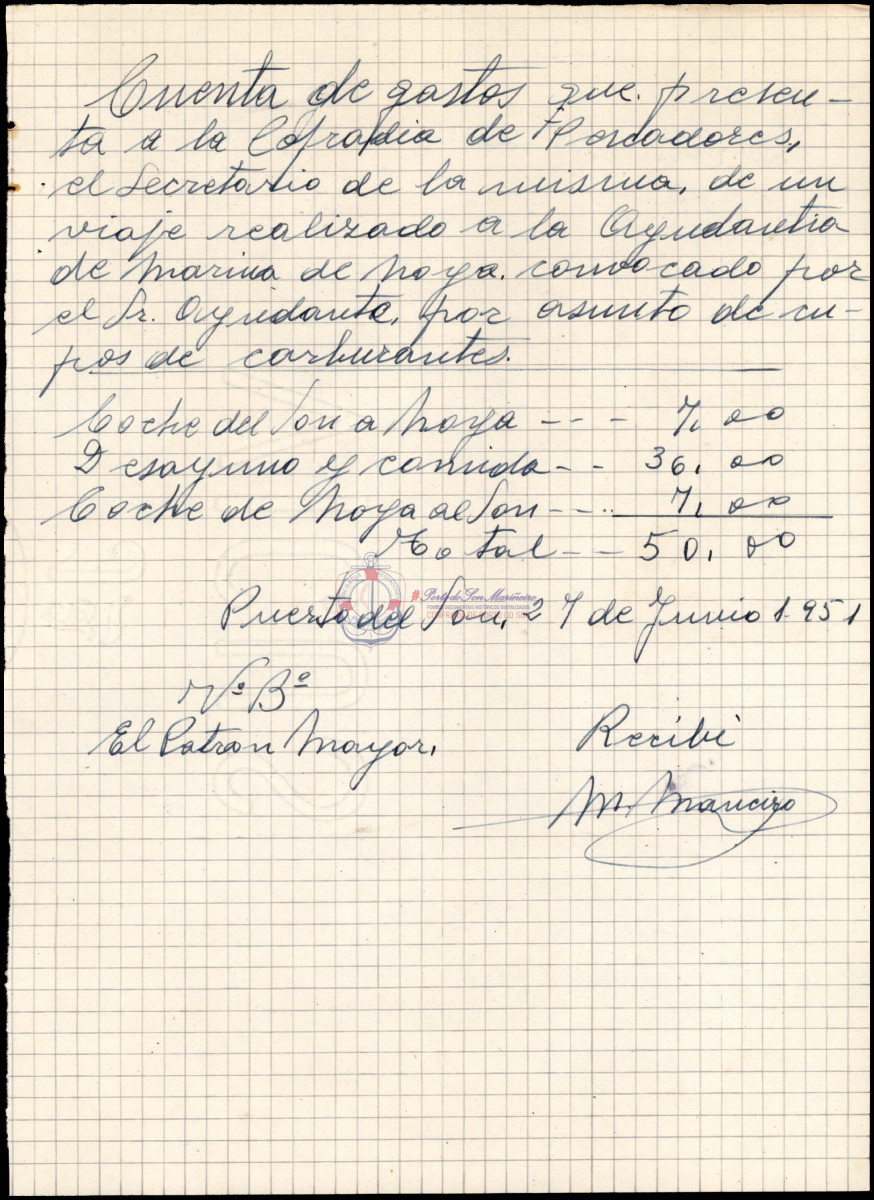 Cuenta de gastos que presen-
ta a la Cofradia de Pescadores,
el Secretario de la misma, de un
viaje realizado a la Ayudantia
de Marina de Noya. convocado por
el Sr. Ayudante, por asunto de cu-
pos de carburantes.
Coche del Son a Noya --- 7,00
Desayuno y comida -- 36,00
Coche de Noya al Son --- 7,00
Total -- 50,00
#Porto do Son Mariñeiro
Puerto del Son, 27 de Junio 1.951
Vº Bº
El Patron Mayor,
Recibi
M. Maneiro